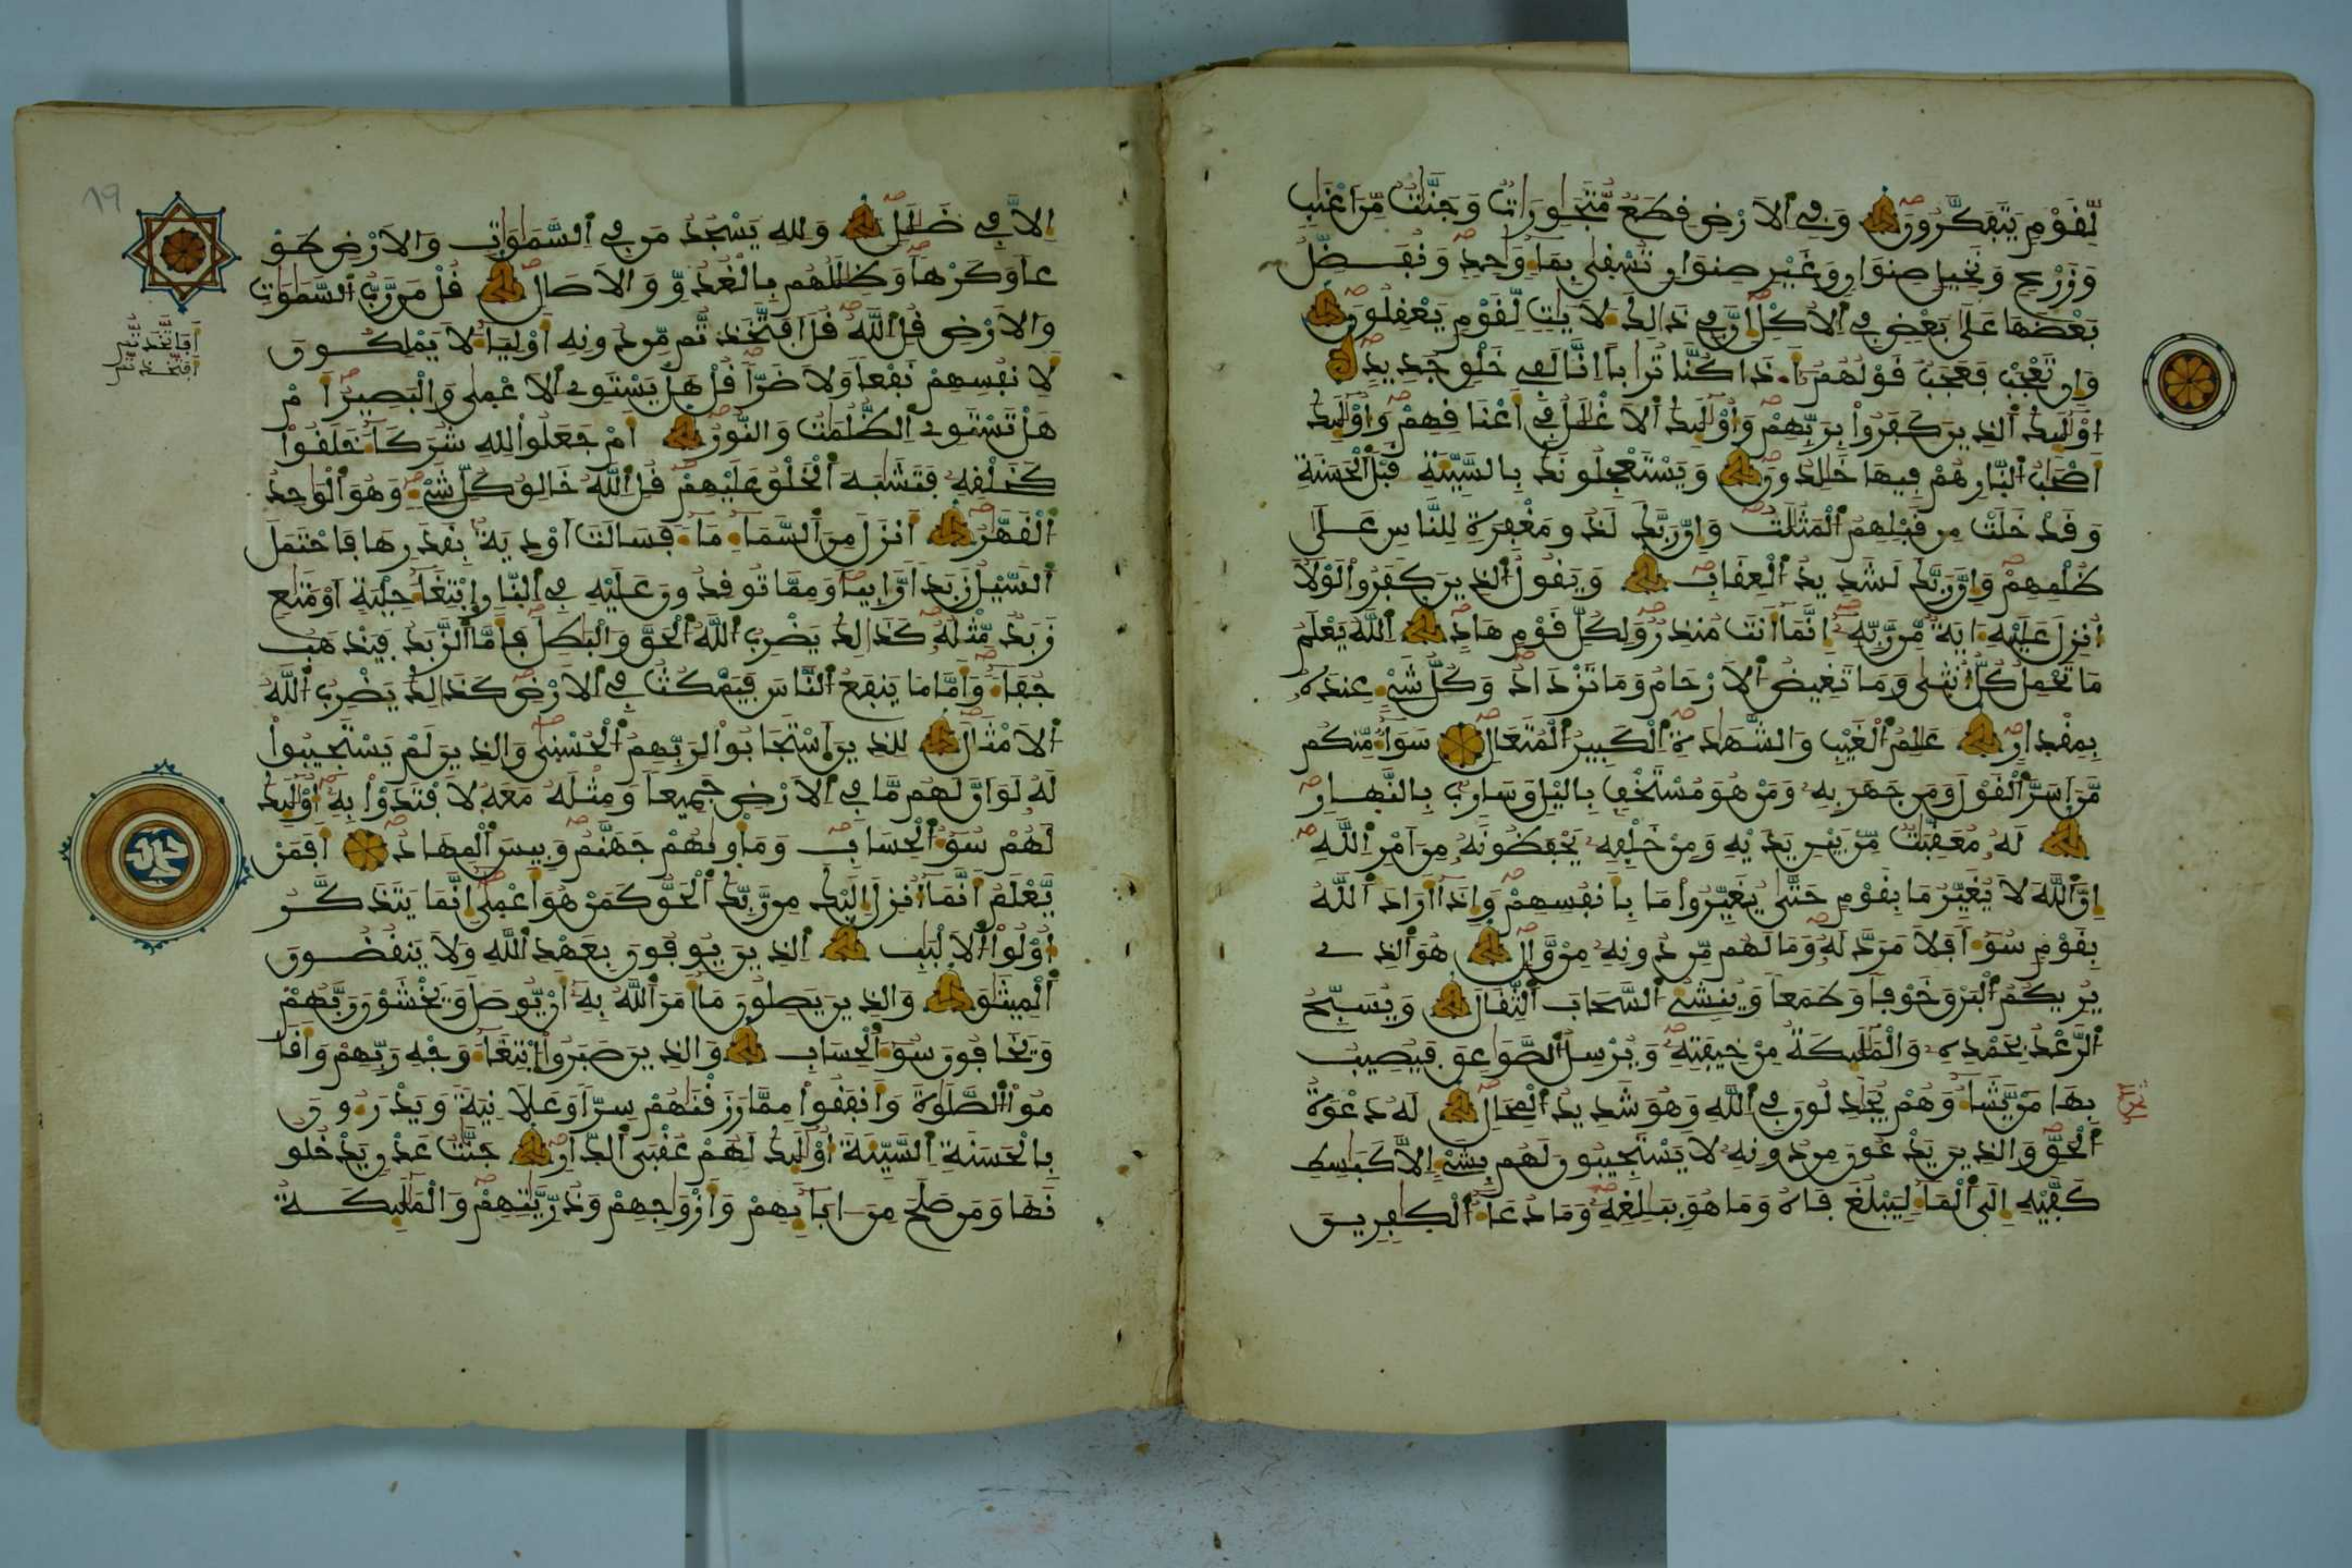 لِّقَوْمٍ يَتَفَكَّرُونَ وَفِي الَارْضِ قِطَعٌ مُّتَجَٰوِرَاتٌ وَجَنَّٰتٌ مِّنَ اَعْنَٰبٍ
وَزَرْعٍ وَنَخِيلٍ صِنْوَانٍ وَغَيْرِ صِنْوَانٍ تُسْقٜىٰ بِمَآءٍ وَٰحِدٍ وَنُفَضِّلُ
بَعْضَهَا عَلَىٰ بَعْضٍ فِي الُاكْلِ إِنَّ فِي ذَٰلِكَ ءَلَايَٰتٍ لِّقَوْمٍ يَعْقِلُونَ
وَإِن تَعْجَبْ فَعَجَبٌ قَوْلُهُمُ أَ.ذَا كُنَّا تُرَٰباً اِنَّا لَفِي خَلْقٍ جَدِيدٍ
اُوْلَٰٓئِكَ الذِينَ كَفَرُواْ بِرَبِّهِمْ وَأُوْلَٰٓئِكَ الَاغْلَٰلُ فِي أَعْنَاقِهِمْ وَأُوْلَٰٓئِكَ
أَصْحَٰبُ النّ۪ارِ هُمْ فِيهَا خَٰلِدُونَ وَيَسْتَعْجِلُونَكَ بِالسَّيِّئَةِ قَبْلَ الْحَسَنَةِ
وَقَدْ خَلَتْ مِن قَبْلِهِمُ الْمَثُلَٰتُ وَإِنَّ رَبَّكَ لَذُو مَغْفِرَةٍ لِّلنَّاسِ عَلَىٰ
ظُلْمِهِمْ وَإِنَّ رَبَّكَ لَشَدِيدُ الْعِقَابِ وَيَقُولُ الذِينَ كَفَرُواْ لَوْلَآ
أُنزِلَ عَلَيْهِ ءَايَةٌ مِّن رَّبِّهِ إِنَّمَآ أَنتَ مُنذِرٌ وَلِكُلِّ قَوْمٍ هَادٍ اَللَّهُ يَعْلَمُ
مَا تَحْمِلُ كُلُّ أُنثٜىٰ وَمَا تَغِيضُ الَارْحَامُ وَمَا تَزْدَادُ وَكُلُّ شَيْءٍ عِندَهُ
بِمِقْد۪ارٍ عَٰلِمُ الْغَيْبِ وَالشَّهَٰدَةِ الْكَبِيرُ الْمُتَعَالِ سَوَآءٌ مِّنكُم
مَّنَ اَسَرَّ الْقَوْلَ وَمَن جَهَرَ بِهِ وَمَنْ هُوَ مُسْتَخْفٍ بِاليْلِ وَسَارِبٌ بِالنَّهَارِ
لَهُ مُعَقِّبَٰتٌ مِّنۢ بَيْنِ يَدَيْهِ وَمِنْ خَلْفِهِ يَحْفَظُونَهُ مِنَ اَمْرِ اللَّهِ
إِنَّ اللَّهَ لَا يُغَيِّرُ مَا بِقَوْمٍ حَتَّىٰ يُغَيِّرُواْ مَا بِأَنفُسِهِمْ وَإِذَآ أَرَادَ اللَّهُ
بِقَوْمٍ سُوٓءاً فَلَا مَرَدَّ لَهُ وَمَا لَهُم مِّن دُونِهِ مِنْ وَّالٍ هُوَ الذِے
يُرِيكُمُ الْبَرْقَ خَوْفاً وَطَمَعاً وَيُنشِئُ السَّحَابَ الثِّقَالَ وَيُسَبِّحُ
الرَّعْدُ بِحَمْدِهِ وَالْمَلَٰٓئِكَةُ مِنْ خِيفَتِهِ وَيُرْسِلُ الصَّوَٰعِقَ فَيُصِيبُ
بِهَا مَنْ يَّشَآءُ وَهُمْ يُجَٰدِلُونَ فِي اللَّهِ وَهُوَ شَدِيدُ الْمِحَالِ لَهُ دَعْوَةُ
الْحَقِّ وَالذِينَ يَدْعُونَ مِن دُونِهِ لَا يَسْتَجِيبُونَ لَهُم بِشَيْءٍ اِلَّا كَبَٰسِطِ
كَفَّيْهِ إِلَى الْمَآءِ لِيَبْلُغَ فَاهُ وَمَا هُوَ بِبَٰلِغِهِ وَمَا دُعَآءُ الْكٰ۪فِرِينَ
19
إِلَّا فِي ضَلَٰلٍ وَلِلهِ يَسْجُدُ مَن فِي السَّمَٰوَٰتِ وَالَارْضِ طَوْ
عاً وَكَرْهاً وَظِلَٰلُهُم بِالْغُدُوِّ وَالَاصَالِ قُلْ مَن رَّبُّ السَّمَٰوَٰتِ
وَالَارْضِ قُلِ اللَّهُ قُلَ اَفَاتَّخَذتُّم مِّن دُونِهِ أَوْلِيَآءَ لَا يَمْلِكُونَ
لِأَنفُسِهِمْ نَفْعاً وَلَا ضَرّاً قُلْ هَلْ يَسْتَوِے الَاعْمٜىٰ وَالْبَصِيرُ أَمْ
هَلْ تَسْتَوِے الظُّلُمَٰتُ وَالنُّورُ أَمْ جَعَلُواْ لِلهِ شُرَكَآءَ خَلَقُواْ
كَخَلْقِهِ فَتَشَٰبَهَ الْخَلْقُ عَلَيْهِمْ قُلِ اللَّهُ خَٰلِقُ كُلِّ شَيْءٍ وَهُوَ الْوَٰحِدُ
الْقَهَّٰرُ أَنزَلَ مِنَ السَّمَآءِ مَآءً فَسَالَتَ اَوْدِيَةٌ بِقَدَرِهَا فَاحْتَمَلَ
السَّيْلُ زَبَداً رَّابِياً وَمِمَّا تُوقِدُونَ عَلَيْهِ فِي النّ۪ارِ ابْتِغَآءَ حِلْيَةٍ اَوْ مَتَٰعٍ
زَبَدٌ مِّثْلُهُ كَذَٰلِكَ يَضْرِبُ اللَّهُ الْحَقَّ وَالْبَٰطِلَ فَأَمَّا الزَّبَدُ فَيَذْهَبُ
جُفَآءً وَأَمَّا مَا يَنفَعُ النَّاسَ فَيَمْكُثُ فِي الَارْضِ كَذَٰلِكَ يَضْرِبُ اللَّهُ
الَامْثَالَ لِلذِينَ اَسْتَجَابُواْ لِرَبِّهِمُ الْحُسْنٜىٰ وَالذِينَ لَمْ يَسْتَجِيبُواْ
لَهُ لَوَ اَنَّ لَهُم مَّا فِي الَارْضِ جَمِيعاً وَمِثْلَهُ مَعَهُ لَافْتَدَوْاْ بِهِ أُوْلَٰٓئِكَ
لَهُمْ سُوٓءُ الْحِسَابِ وَمَأْوٜىٰهُمْ جَهَنَّمُ وَبِيسَ الْمِهَادُ أَفَمَنْ
يَّعْلَمُ أَنَّمَآ أُنزِلَ إِلَيْكَ مِن رَّبِّكَ الْحَقُّ كَمَنْ هُوَ أَعْمٜىٰ إِنَّمَا يَتَذَكَّرُ
أُوْلُواْ الَالْبَٰبِ الذِينَ يُوفُونَ بِعَهْدِ اللَّهِ وَلَا يَنقُضُونَ
الْمِيثَٰقَ وَالذِينَ يَصِلُونَ مَآ أَمَرَ اللَّهُ بِهِ أَنْ يُّوصَلَ وَيَخْشَوْنَ رَبَّهُمْ
وَيَخَافُونَ سُوٓءَ الْحِسَابِ وَالذِينَ صَبَرُواْ ابْتِغَآءَ وَجْهِ رَبِّهِمْ وَأَقَا
مُواْ الصَّلَوٰةَ وَأَنفَقُواْ مِمَّا رَزَقْنَٰهُمْ سِرّاً وَعَلَانِيَةً وَيَدْرَءُونَ
بِالْحَسَنَةِ السَّيِّئَةَ أُوْلَٰٓئِكَ لَهُمْ عُقْبَى الدّ۪ارِ جَنَّٰتُ عَدْنٍ يَدْخُلُو
نَهَا وَمَن صَلَحَ مِنَ اٰبَآئِهِمْ وَأَزْوَٰجِهِمْ وَذُرِّيَّٰتِهِمْ وَالْمَلَٰٓئِكَةُ